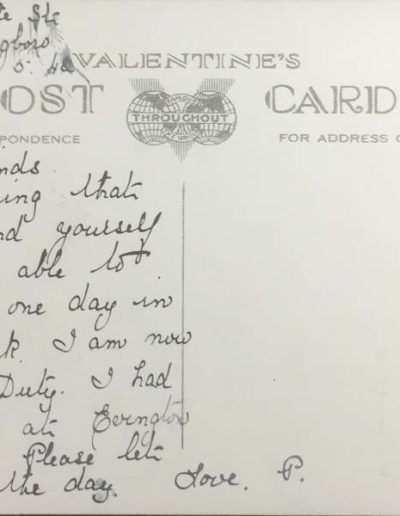 te Stc
gboro
VALENTINE'S
OST CARD
THROUGHOUT
PONDENCE FOR ADDRESS O
nds
ing that
nd yourself
able to
one day in
k. I am now
Duty. I had
at Evington
Please let
the day. Love. P.